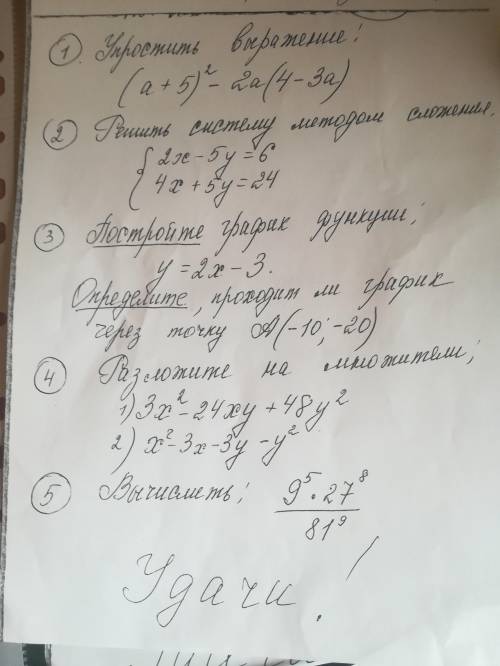 ① Упростить выражение:
(a + 5)² - 2a(4 - 3a)
② Решить систему методом сложения.
{ 2x - 5y = 6
4x + 5y = 24
③ Постройте график функции;
y = 2x - 3.
Определите, проходит ли график
через точку A(-10; -20)
④ Разложите на множители;
1) 3x² - 24xy + 48y²
2) x² - 3x - 3y - y²
⑤ Вычислить; 9⁵ · 27⁸ / 81⁹
Удачи!